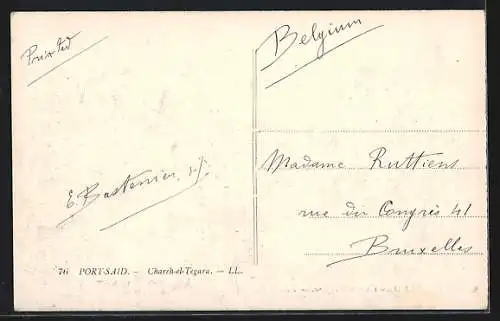 Printed
Belgium
Madame Ruttiens
E. Bastenier, s.j.
rue du Congrès 41
Bruxelles
76 PORT-SAID. – Chareh-el-Tegara. – LL.